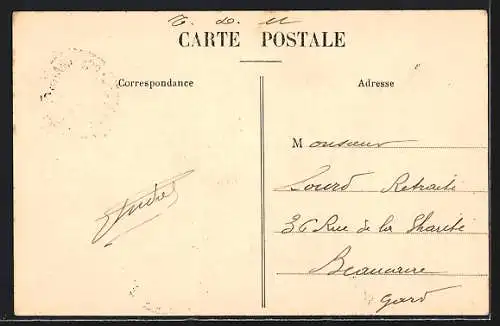 T. D. U
CARTE POSTALE
Correspondance
Adresse
Monsieur
Lourd Retraité
36 Rue de la Charité
André
Beaucaire
Gard